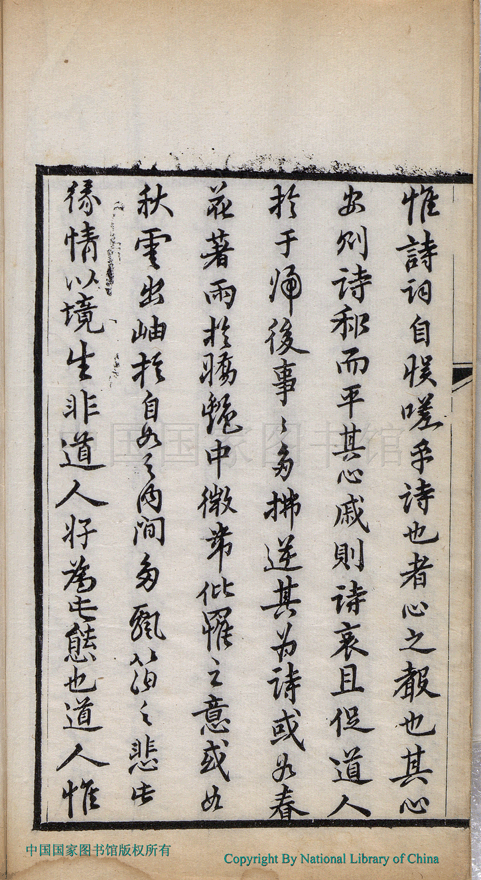 惟詩詞自娛嗟乎詩也者心之聲也其心
安則詩和而平其心戚則詩哀且促道人
於于歸後事〻多拂逆其为詩或如春
花著雨於嬌艷中微帶仳罹之意或如
秋雲出岫於自如之內间多飄泊之悲此
緣情以境生非道人好為此態也道人惟
中国国家图书馆
中国国家图书馆版权所有
Copyright By National Library of China